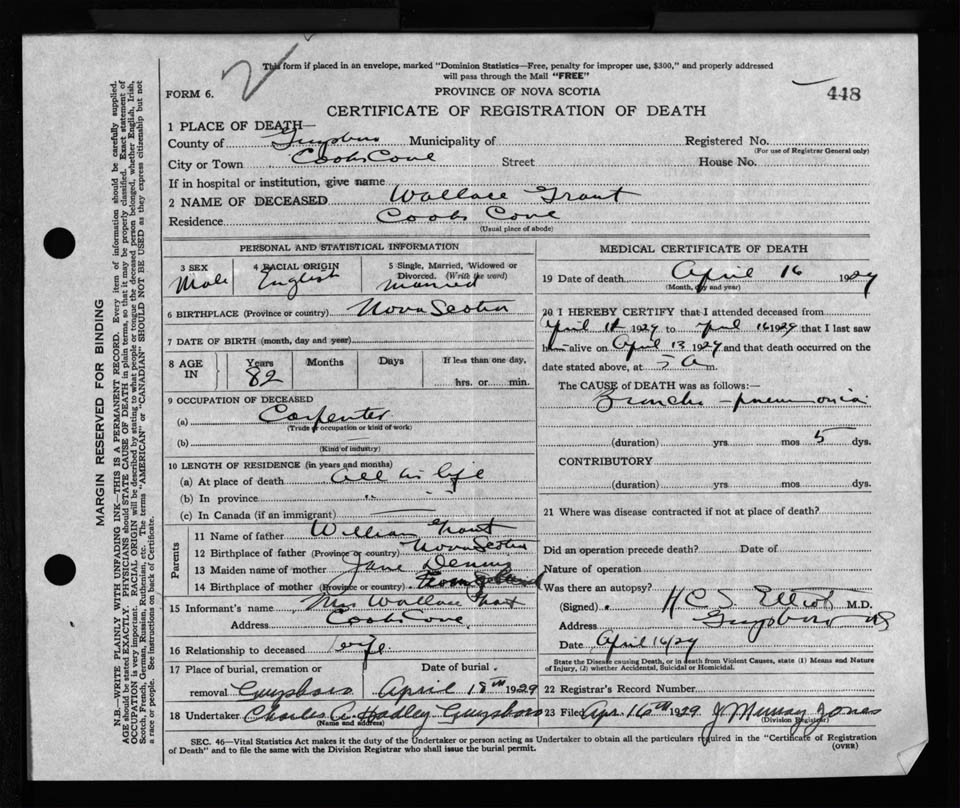 This form if placed in an envelope, marked "Dominion Statistics—Free, penalty for improper use, $300," and properly addressed
will pass through the Mail "FREE"
FORM 6.
PROVINCE OF NOVA SCOTIA
448
CERTIFICATE OF REGISTRATION OF DEATH
1 PLACE OF DEATH—
County of Guysboro Municipality of Registered No.
(For use of Registrar General only)
City or Town Cooks Cove Street House No.
If in hospital or institution, give name
2 NAME OF DECEASED Wallace Grant
Residence Cooks Cove
(Usual place of abode)
PERSONAL AND STATISTICAL INFORMATION
3 SEX 4 RACIAL ORIGIN 5 Single, Married, Widowed or
Divorced. (Write the word)
Male English Married
6 BIRTHPLACE (Province or country) Nova Scotia
7 DATE OF BIRTH (month, day and year)
8 AGE IN Years Months Days If less than one day,
82 hrs. or min.
9 OCCUPATION OF DECEASED
(a) Carpenter
(Trade or occupation or kind of work)
(b)
(Kind of industry)
10 LENGTH OF RESIDENCE (in years and months)
(a) At place of death all his life
(b) In province " "
(c) In Canada (if an immigrant)
Parents
11 Name of father William Grant
12 Birthplace of father (Province or country) Nova Scotia
13 Maiden name of mother Jane
14 Birthplace of mother (Province or country)
15 Informant's name Mrs Wallace Grant
Address Cooks Cove
16 Relationship to deceased wife
17 Place of burial, cremation or Date of burial.
removal Guysboro April 18th 1929
18 Undertaker Charles A. Hadley Guysboro
(Name and address)
MEDICAL CERTIFICATE OF DEATH
19 Date of death April 16 1929
(Month, day and year)
20 I HEREBY CERTIFY that I attended deceased from
April 1929 to April 16 1929 that I last saw
him alive on April 13 1929 and that death occurred on the
date stated above, at 5 a m.
The CAUSE of DEATH was as follows:—
Broncho-pneumonia
(duration) yrs mos 5 dys.
CONTRIBUTORY
(duration) yrs mos dys.
21 Where was disease contracted if not at place of death?
Did an operation precede death? Date of
Nature of operation
Was there an autopsy?
(Signed) H C S Elliot M.D.
Address Guysboro NS
Date April 16/29
State the Disease causing Death, or in death from Violent Causes, state (1) Means and Nature
of Injury, (2) whether Accidental, Suicidal or Homicidal.
22 Registrar's Record Number
23 Filed Apr. 16th 1929 J Murray Jones
(Division Registrar)
SEC. 46—Vital Statistics Act makes it the duty of the Undertaker or person acting as Undertaker to obtain all the particulars required in the "Certificate of Registration
of Death" and to file the same with the Division Registrar who shall issue the burial permit.
(OVER)
MARGIN RESERVED FOR BINDING
N.B.—WRITE PLAINLY WITH UNFADING INK—THIS IS A PERMANENT RECORD. Every items of information should be carefully supplied.
AGE should be stated EXACTLY. PHYSICIANS should STATE CAUSE OF DEATH in plain terms, so that it may be properly classified. Exact statement of
OCCUPATION is very important. RACIAL ORIGIN will be described by stating to what people or tongue the deceased person belonged, whether English, Irish,
Scotch, French, German, Russian, Ruthenian, etc. The terms "AMERICAN" or "CANADIAN" SHOULD NOT BE USED as they express citizenship but not
a race or people. See instructions on back of Certificate.